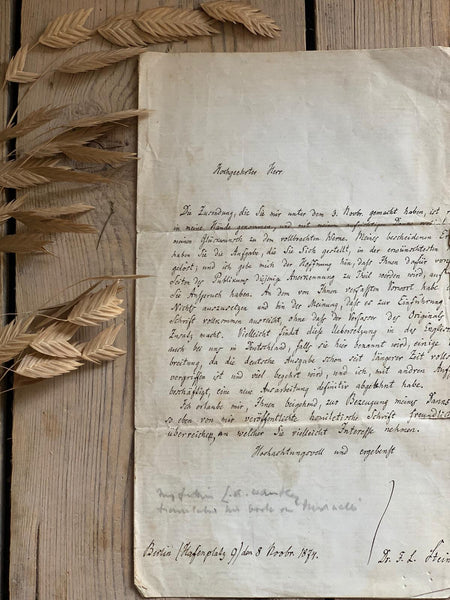 Hochgeehrter Herr
Die Zusendung, die Sie mir unter dem 3. Novbr. gemacht haben, ist
in meine Hände gekommen, und mit
meinen Glückwunsch zu dem vollbrachten Werke. Meines bescheidenen
haben Sie die Aufgabe, die Sie Sich gestellt, in der erwünschtesten
gelöst, und ich gebe mich der Hoffnung hin, daß Ihnen dafür von
Seiten des Publikums diejenige Anerkennung zu Theil werden wird, auf
Sie Anspruch haben. An dem von Ihnen verfaßten Vorwort habe
Nichts auszusetzen und bin der Meinung, daß es zur Einführung
Schrift vollkommen ausreicht, ohne daß der Verfasser des Originals
Zusatz macht. Vielleicht findet diese Uebersetzung in das
auch bei uns in Deutschland, falls sie hier bekannt wird, einige
breitung, da die deutsche Ausgabe schon seit längerer Zeit
vergriffen ist und viel begehrt wird, und ich, mit andren
beschäftigt, eine neue Bearbeitung definitiv abgelehnt habe.
Ich erlaube mir, Ihnen beigehend, zur Bezeugung meines
so eben von mir veröffentlichte homiletische Schrift
überreichen, an welcher Sie vielleicht Interesse nehmen.
Hochachtungsvoll und ergebenst
translated his book on
Berlin (Hafenplatz 9) den 8 Novbr. 1874.
Dr. F. L.